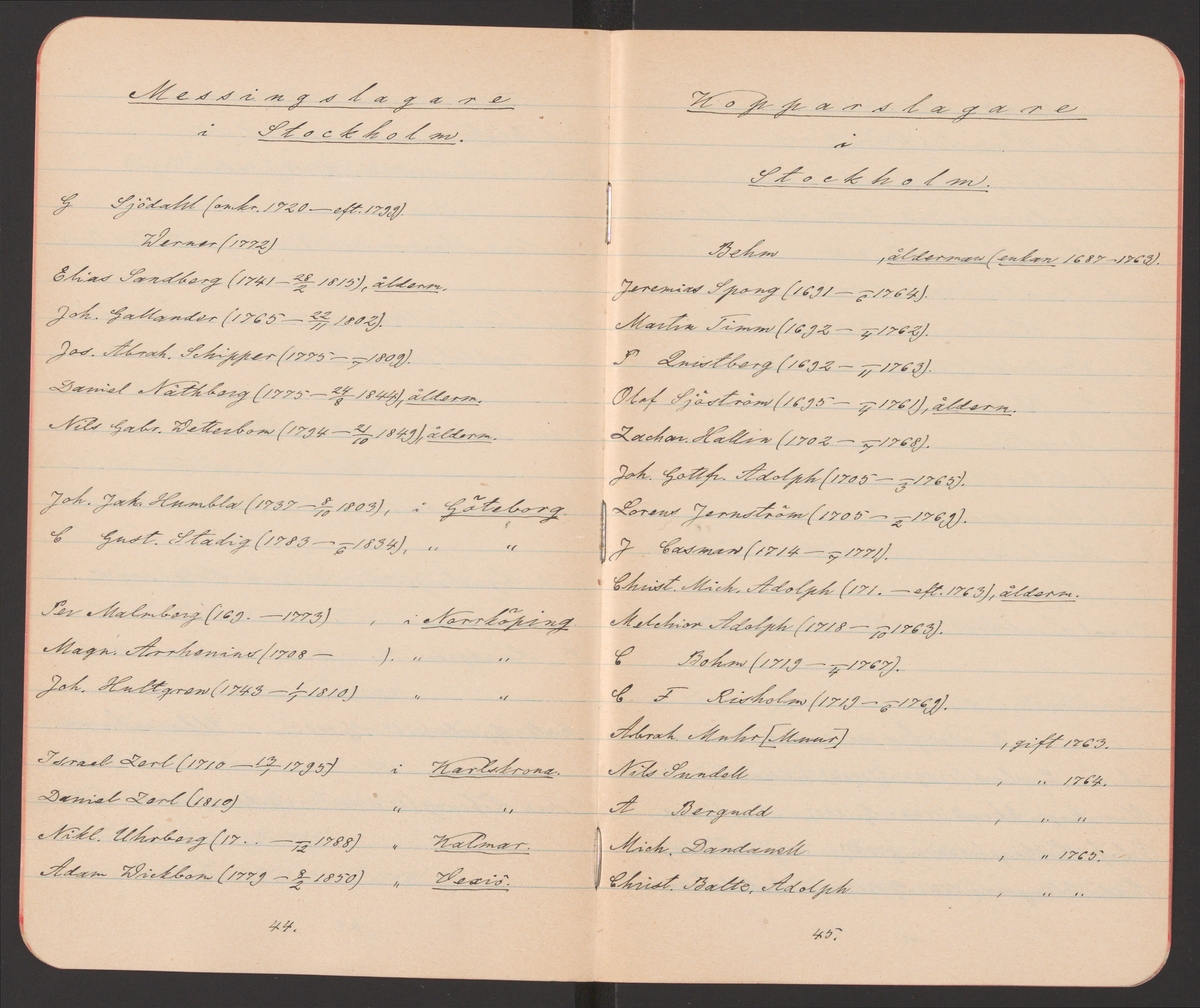 Messingslagare
i Stockholm.
G Sjödahl (omkr. 1720 — eft. 1799).
Werner (1772)
Elias Sandberg (1741 — 28/2 1815), ålderm.
Joh. Gallander (1765 — 22/11 1802).
Jos. Abrah. Schipper (1775 — –/7 1809).
Daniel Näthberg (1775 — 24/8 1844), ålderm.
Nils Gabr. Wetterbom (1794 — 21/10 1849), ålderm.
Joh. Jak. Humbla (1737 — 8/10 1803), i Göteborg.
C Gust. Stadig (1783 — –/6 1834), " "
Per Malmborg (169. — 1773) , i Norrköping
Magn. Arrhenius (1708 — ). " "
Joh. Hultgren (1743 — 1/1 1810) " "
Israel Zerl (1710 — 13/1 1795) i Karlskrona.
Daniel Zerl (1819) " "
Nikl. Uhrberg (17.. — –/12 1788) " Kalmar.
Adam Wickbom (1779 — 8/2 1850) " Vexiö.
44.
Kopparslagare
i
Stockholm.
Behm , ålderman (enkan 1687 – 1763).
Jeremias Spong (1691 — –/6 1764).
Martin Timm (1692 — –/4 1762).
P Quistberg (1692 — –/11 1763).
Olof Sjöström (1695 — –/4 1761), ålderm.
Zachar. Hallin (1702 — –/7 1768).
Joh. Gottfr. Adolph (1705 — –/3 1765).
Lorens Jernström (1705 — –/2 1769).
J Casman (1714 — –/7 1771).
Christ. Mich. Adolph (171. — eft. 1763), ålderm.
Melchior Adolph (1718 — –/10 1763).
C Bohm (1719 — –/4 1767).
C F Risholm (1719 — –/6 1769).
Abrah. Muhr [Muur] , gift 1763.
Nils Sundell , " 1764.
A Bergudd , " "
Mich. Dandanell , " 1765.
Christ. Baltz. Adolph , " "
45.